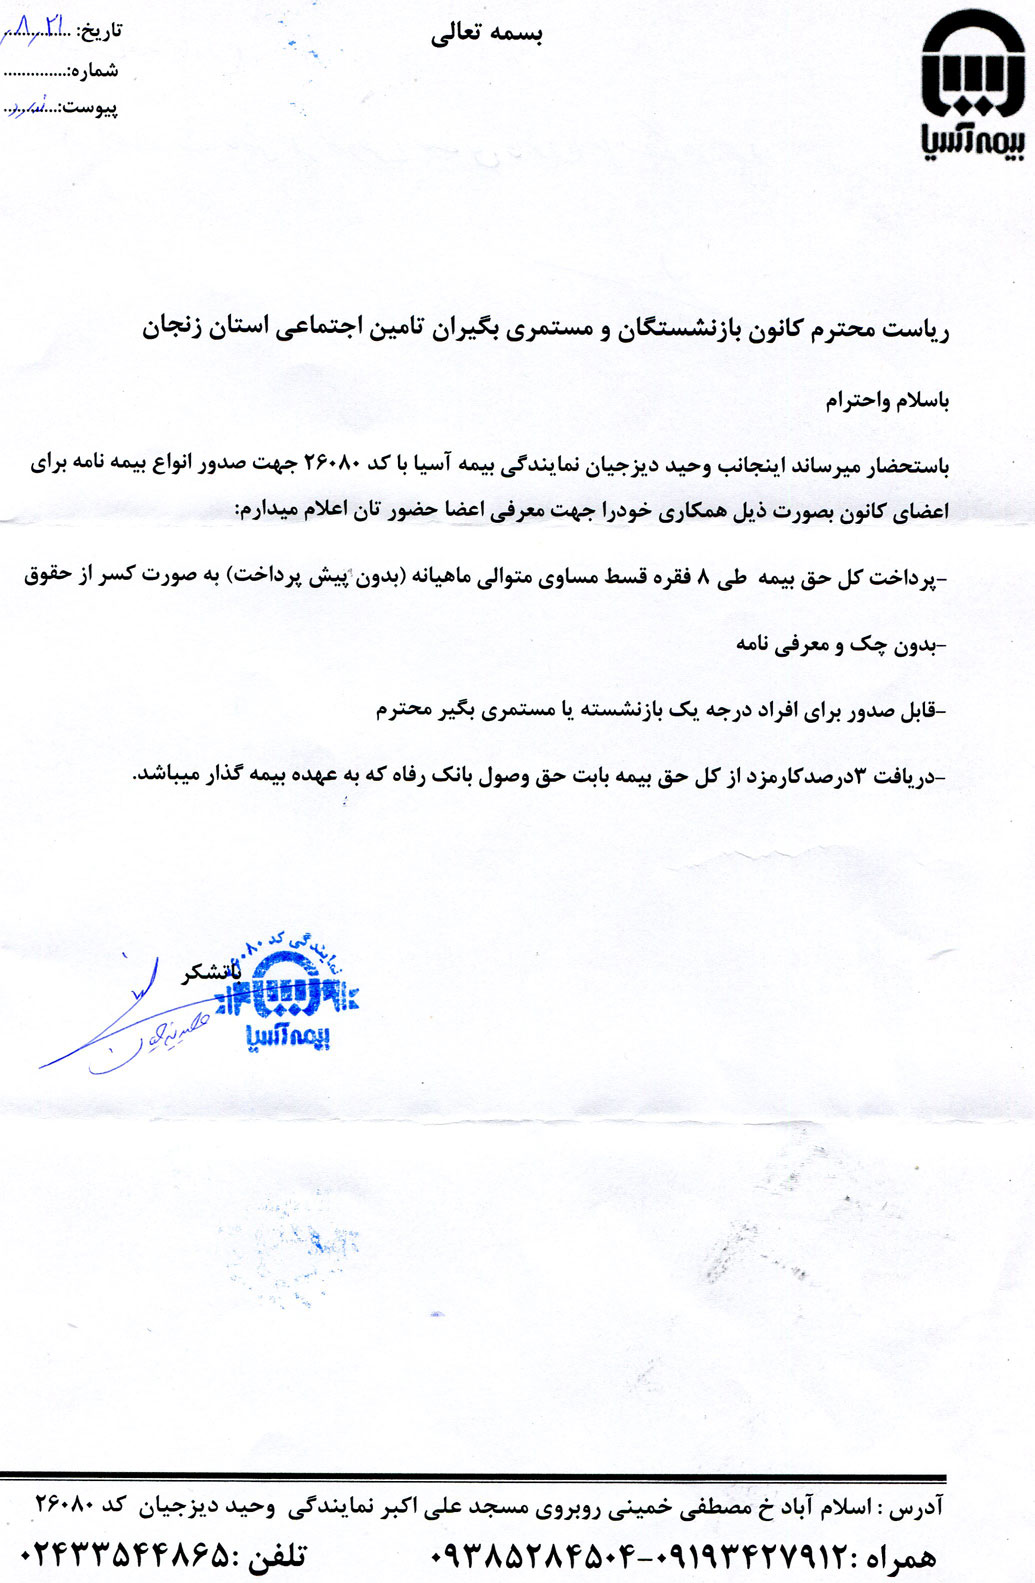 بسمه تعالی
تاریخ: ۸/۲۱
شماره:..............
پیوست:............
بیمه آسیا
ریاست محترم کانون بازنشستگان و مستمری بگیران تامین اجتماعی استان زنجان
باسلام واحترام
باستحضار میرساند اینجانب وحید دیزجیان نمایندگی بیمه آسیا با کد ۲۶۰۸۰ جهت صدور انواع بیمه نامه برای
اعضای کانون بصورت ذیل همکاری خودرا جهت معرفی اعضا حضور تان اعلام میدارم:
-پرداخت کل حق بیمه طی ۸ فقره قسط مساوی متوالی ماهیانه (بدون پیش پرداخت) به صورت کسر از حقوق
-بدون چک و معرفی نامه
-قابل صدور برای افراد درجه یک بازنشسته یا مستمری بگیر محترم
-دریافت ۳درصدکارمزد از کل حق بیمه بابت حق وصول بانک رفاه که به عهده بیمه گذار میباشد.
باتشکر
نمایندگی کد ۲۶۰۸۰
بیمه آسیا
آدرس : اسلام آباد خ مصطفی خمینی روبروی مسجد علی اکبر نمایندگی وحید دیزجیان کد ۲۶۰۸۰
همراه :۰۹۱۹۳۴۲۷۹۱۲-۰۹۳۸۵۲۸۴۵۰۴ تلفن :۰۲۴۳۳۵۴۴۸۶۵